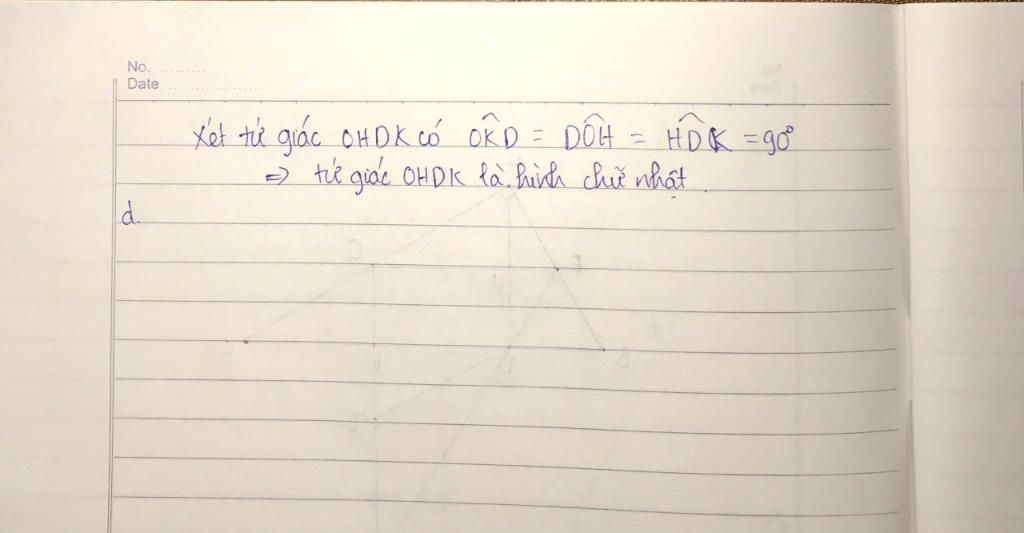 No. ..........
Date ....................
Xét tứ giác OHDK có OK̂D = DÔH = HD̂K = 90°
=> tứ giác OHDK là hình chữ nhật.
d.